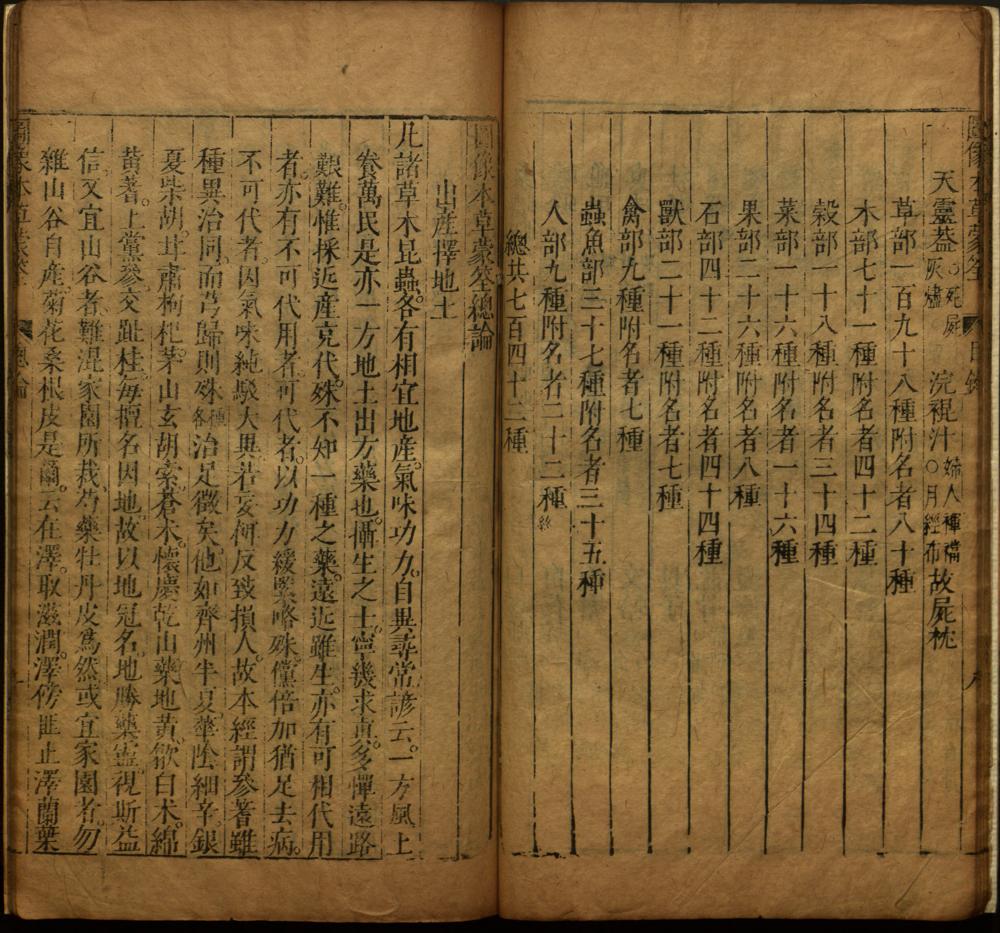 圖像本草蒙筌 目錄 八
天靈蓋 灰燼○死屍 浣裩汁 ○月經布 婦人褌襠 故屍枕
草部一百九十八種附名者八十種
木部七十一種附名者四十二種
穀部一十八種附名者三十四種
菜部一十六種附名者一十六種
果部二十六種附名者八種
石部四十二種附名者四十四種
獸部二十一種附名者七種
禽部九種附名者七種
蟲魚部三十七種附名者三十五種
人部九種附名者二十二種 終
總共七百四十二種
圖像本草蒙筌總論
出產擇地土
凡諸草木昆蟲。各有相宜地產。氣味功力。自異尋常。諺云。一方風土
養萬民。是亦一方地土出方藥也。攝生之士。寧幾求真。多憚遠路
艱難。惟採近產克代。殊不知一種之藥。遠近雖生。亦有可相代用
者。亦有不可代用者。可代者。以功力緩緊略殊。儻倍加猶足去病。
不可代者。因氣味純駁大異。若妄餌反致損人。故本經謂參蓍雖
種異治同。而芎歸則殊種各治足徵矣。他如齊州半夏。華陰細辛。銀
夏柴胡。甘肅枸杞。茅山玄胡索。蒼朮。懷慶乾山藥地黃。歙白朮。綿
黃蓍。上黨參。交趾桂。每擅名因地。故以地冠名。地勝藥靈。視斯益
信。又宜山谷者。難混家園所栽。芍藥牡丹皮為然。或宜家園者。勿
雜山谷自產。菊花桑根皮是爾。云在澤。取滋潤。澤傍匪止澤蘭葉
圖像本草蒙筌 總論 一